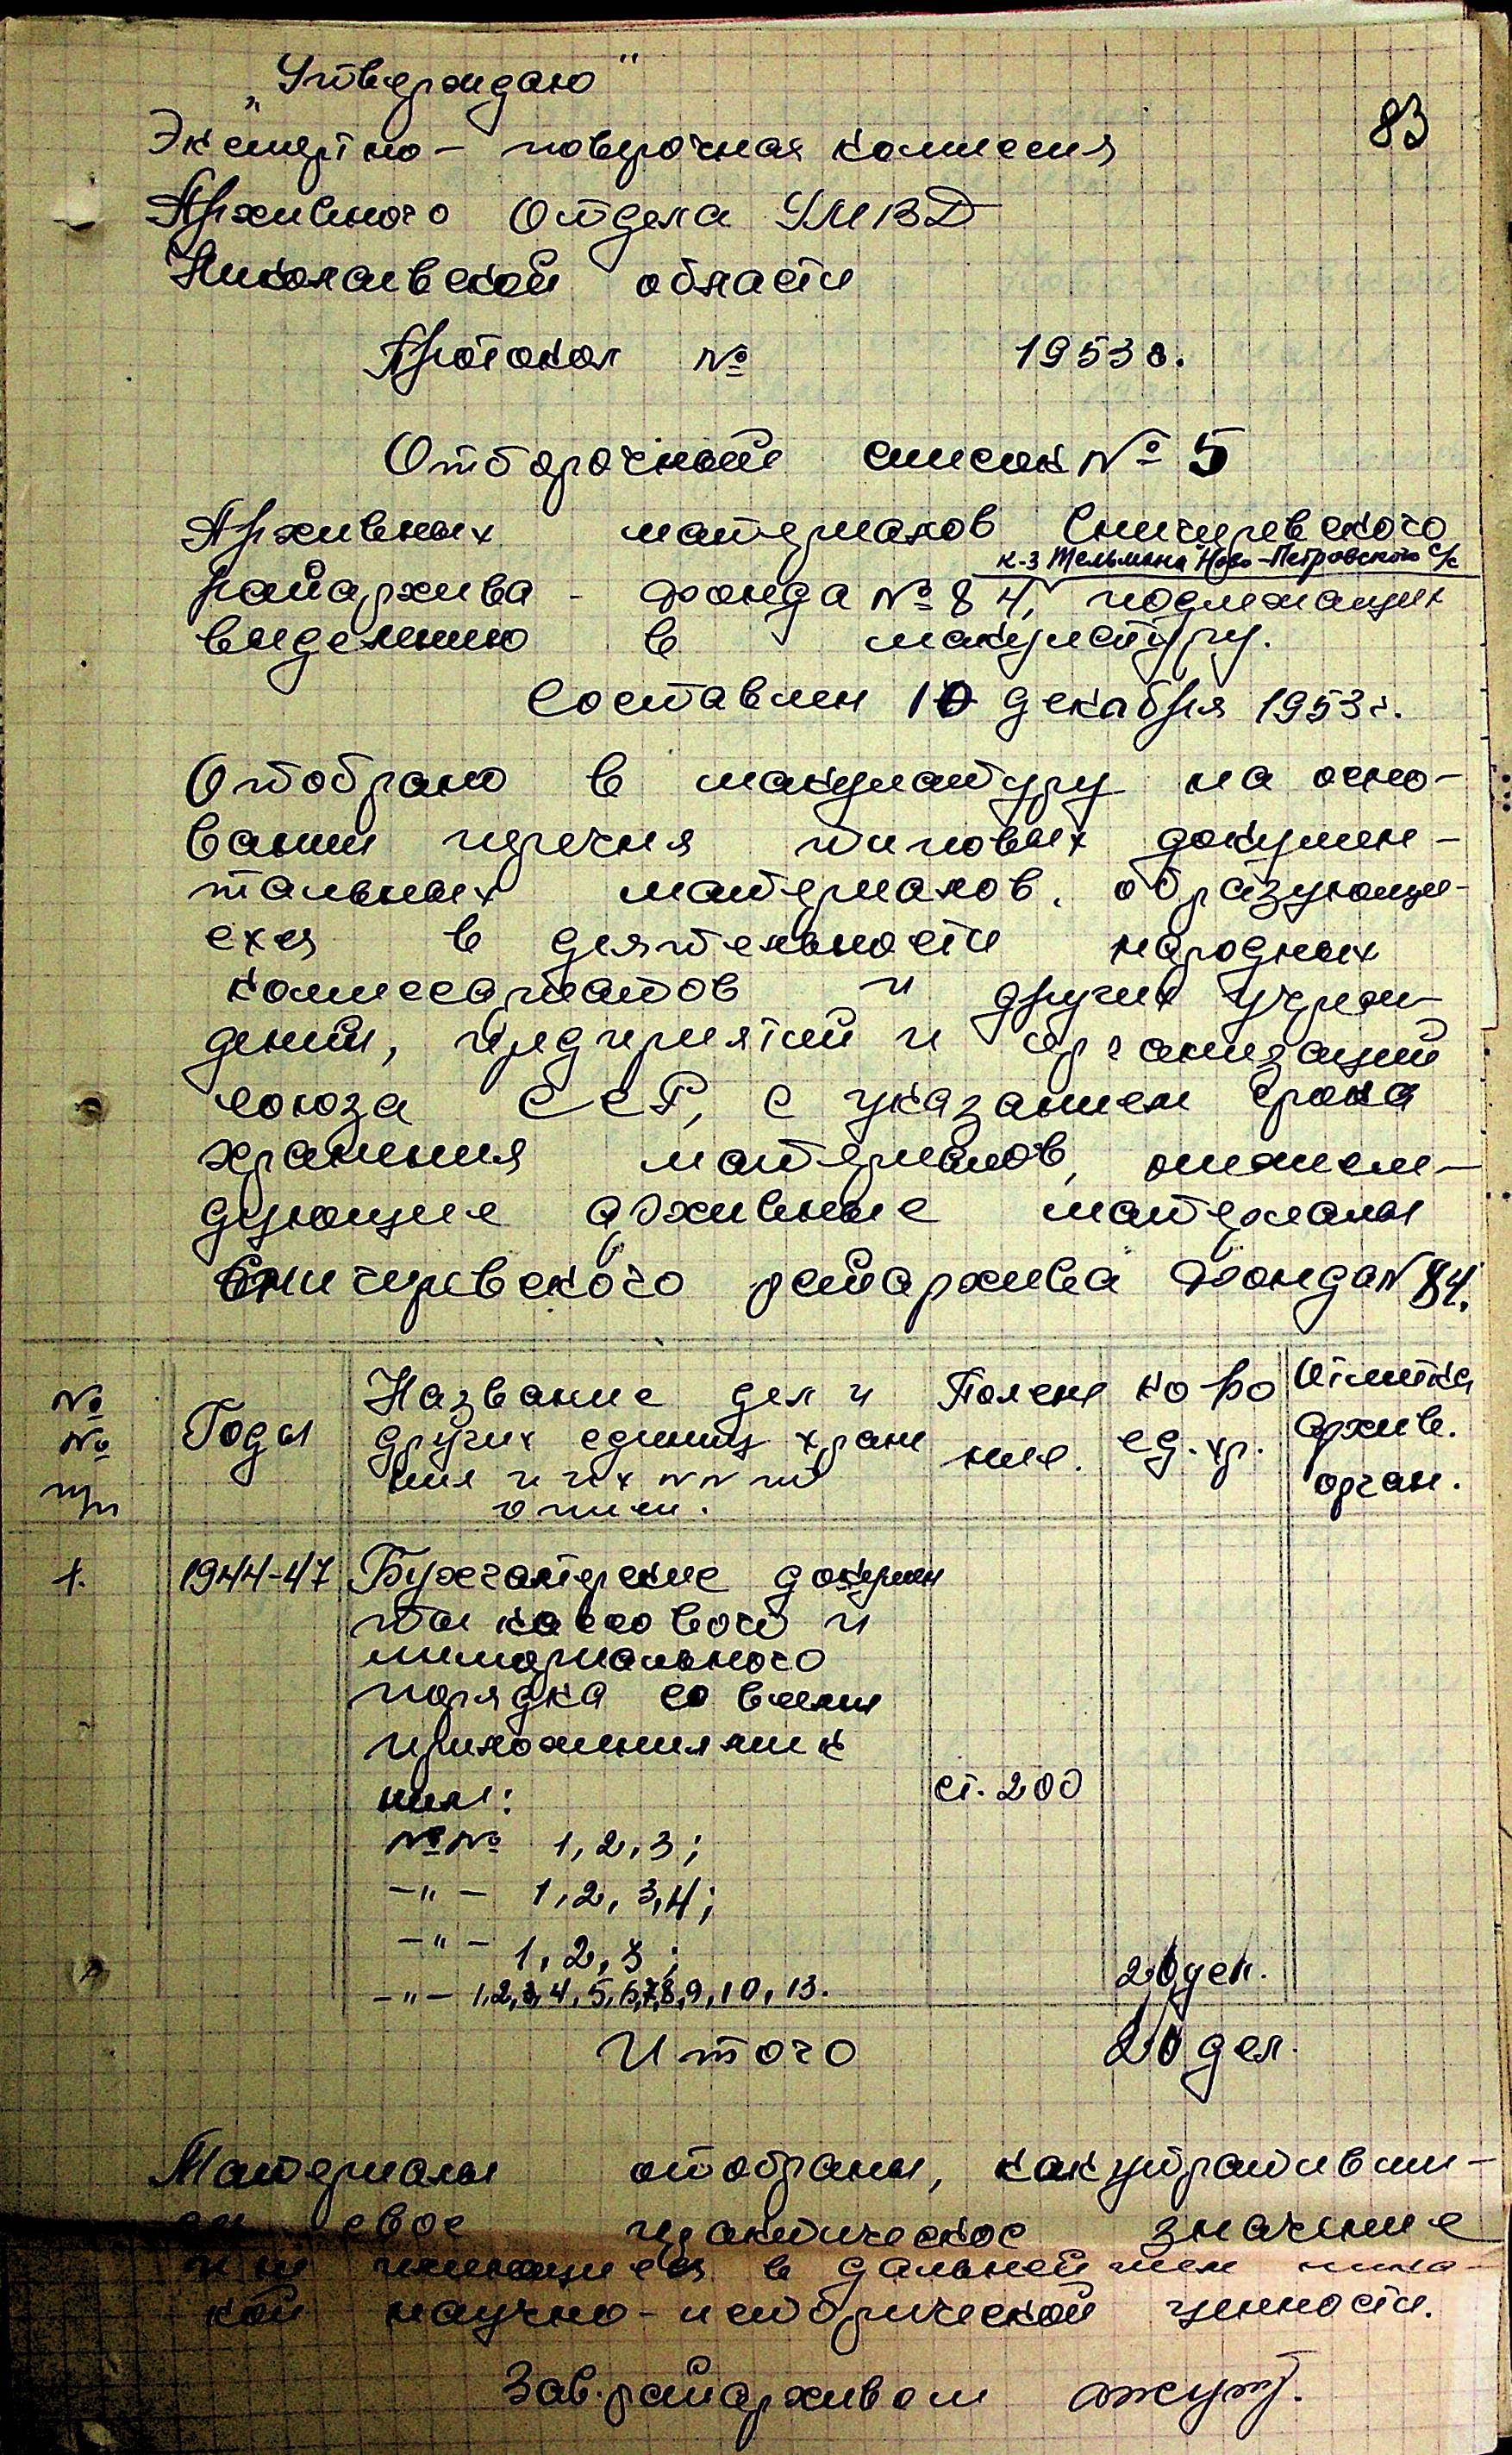 „Утверждаю"
83
Экспертно-поверочная комиссия
Архивного Отдела УМВД
Николаевской области
Протокол № 1953 г.
Отборочный список № 5
Архивных материалов Снигиревского
к-з Тельмана Ново-Петровского с/с
райархива - фонда № 84, подлежащих
выделению в макулатуру.
Составлен 10 декабря 1953 г.
Отобрано в макулатуру на осно-
вании перечня типовых докумен-
тальных материалов, образующи-
ехся в деятельности народных
комиссариатов и других учреж-
дений, предприятий и организаций
союза ССР, с указанием срока
хранения материалов, нижесле-
дующие архивные материалы
Снигиревского райархива Фонда № 84.
№ № п/п
Годы
Название дел и других единиц хране ния и их №№ по описи.
Поясне ние.
ко-во ед. хр.
Отметка архив. орган.
1. 1944-47 Бухгалтерские докумен
ты кассового и
мемориального
порядка со всеми
приложениями к
ним: ст. 200
№№ 1, 2, 3;
-"- 1, 2, 3, 4;
-"- 1, 2, 3;
-"- 1, 2, 3, 4, 5, 6, 7, 8, 9, 10, 13. 20 дел.
Итого 20 дел.
Материалы отобраны, как утративши-
ми свое практическое значение
и не имеющиеся в дальнейшем ника-
кой научно-исторической ценности.
Зав. райархивом